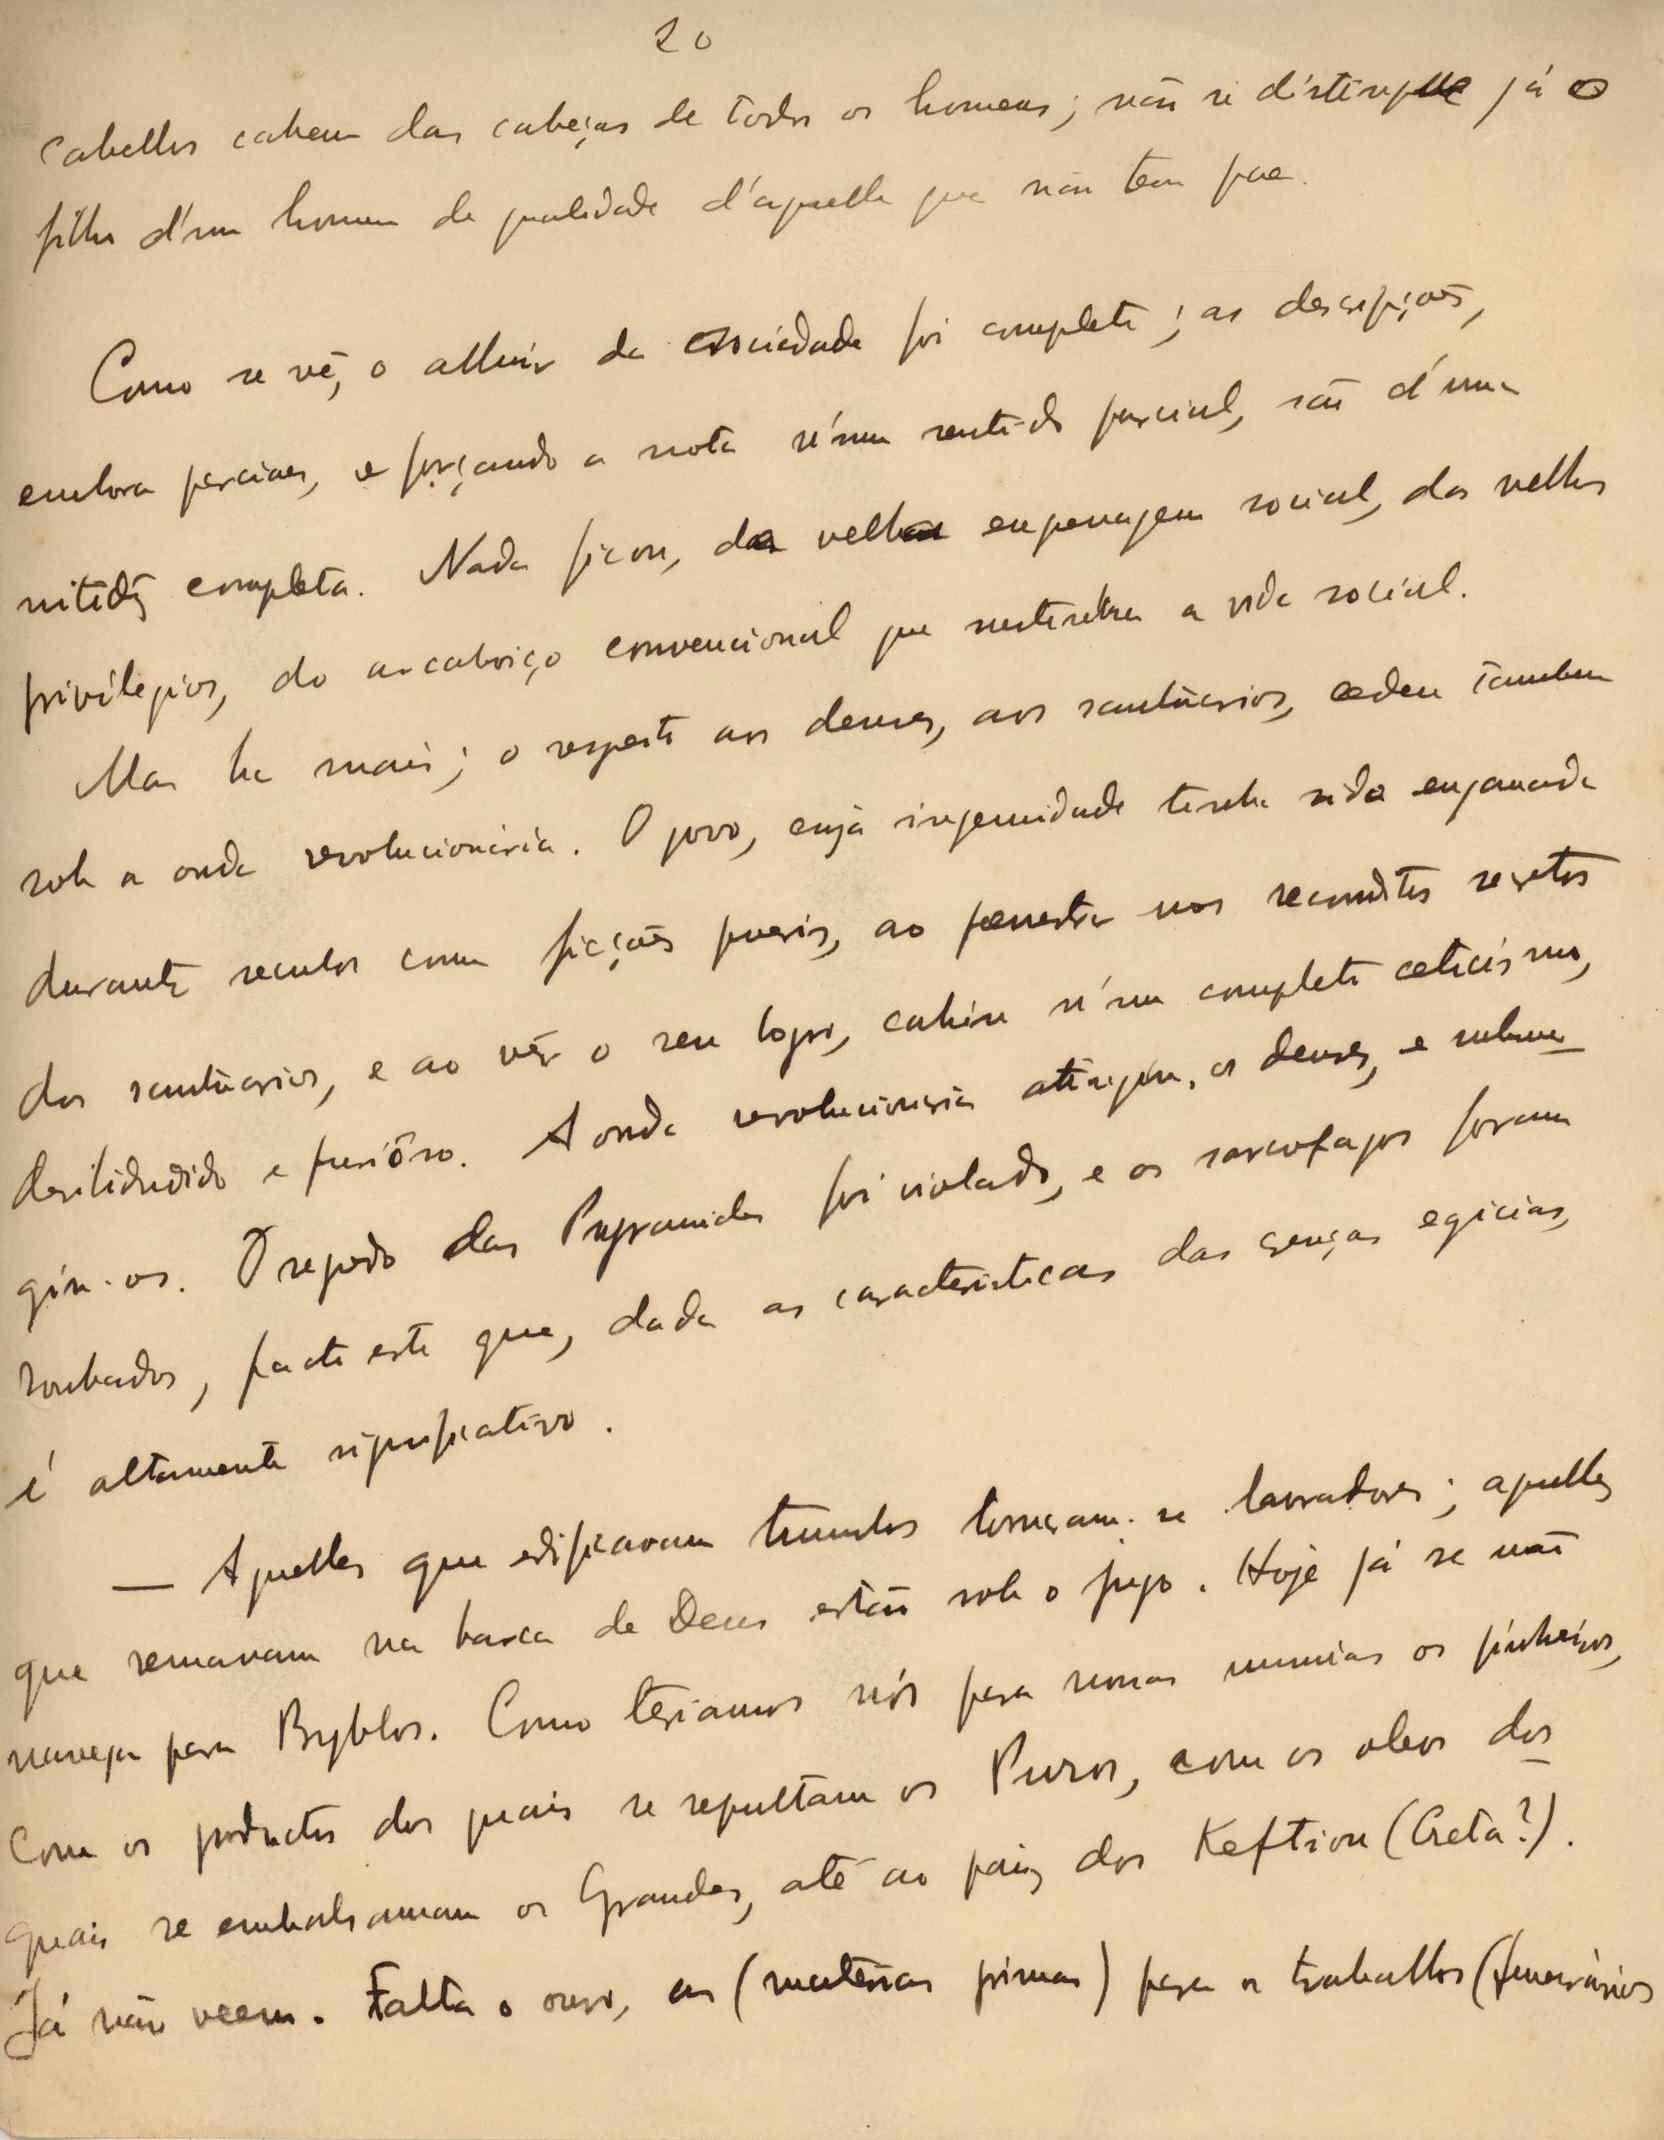 20
cabellos cahem das cabeças de todos os homens; não se distingue já o
filho d'um homem de qualidade d'aquelle que não tem pae.
Como se vê, o alluir da sociedade foi completo; as descripções,
embora parciaes, e forçando a nota n'um sentido parcial, são d'uma
nitidez completa. Nada ficou, da velha engrenagem social, dos velhos
privilegios, do arcaboiço convencional que sustentava a vida social.
Mas ha mais; o respeito aos deuses, aos santuarios, cedeu tambem
sob a onda revolucionaria. O povo, cuja ingenuidade tinha sido enganada
durante seculos com ficções pueris, ao penetrar nos reconditos secretos
dos santuarios, e ao vêr o seu logro, cahiu n'um completo ceticismo,
desiludido e furiôso. A onda revolucionaria attingiu os deuses, e submer-
giu-os. O segredo das Pyramides foi violado, e os sarcofagos foram
roubados, facto este que, dada as caracteristicas das crenças egicias,
é altamente significativo.
— Aquelles que edificavam tumulos tornaram-se lavradores; aquelles
que remavam na barca de Deus estão sob o jugo. Hoje já se não
navega para Byblos. Como teriamos nós para nossas mumias os pinheiros,
com os productos dos quais se sepultam os Puros, com os oleos dos
quais se embalsamam os Grandes, até ao paiz dos Keftiou (Creta?).
Já não veem. Falta o ouro, as (materias primas) para os trabalhos (funerários